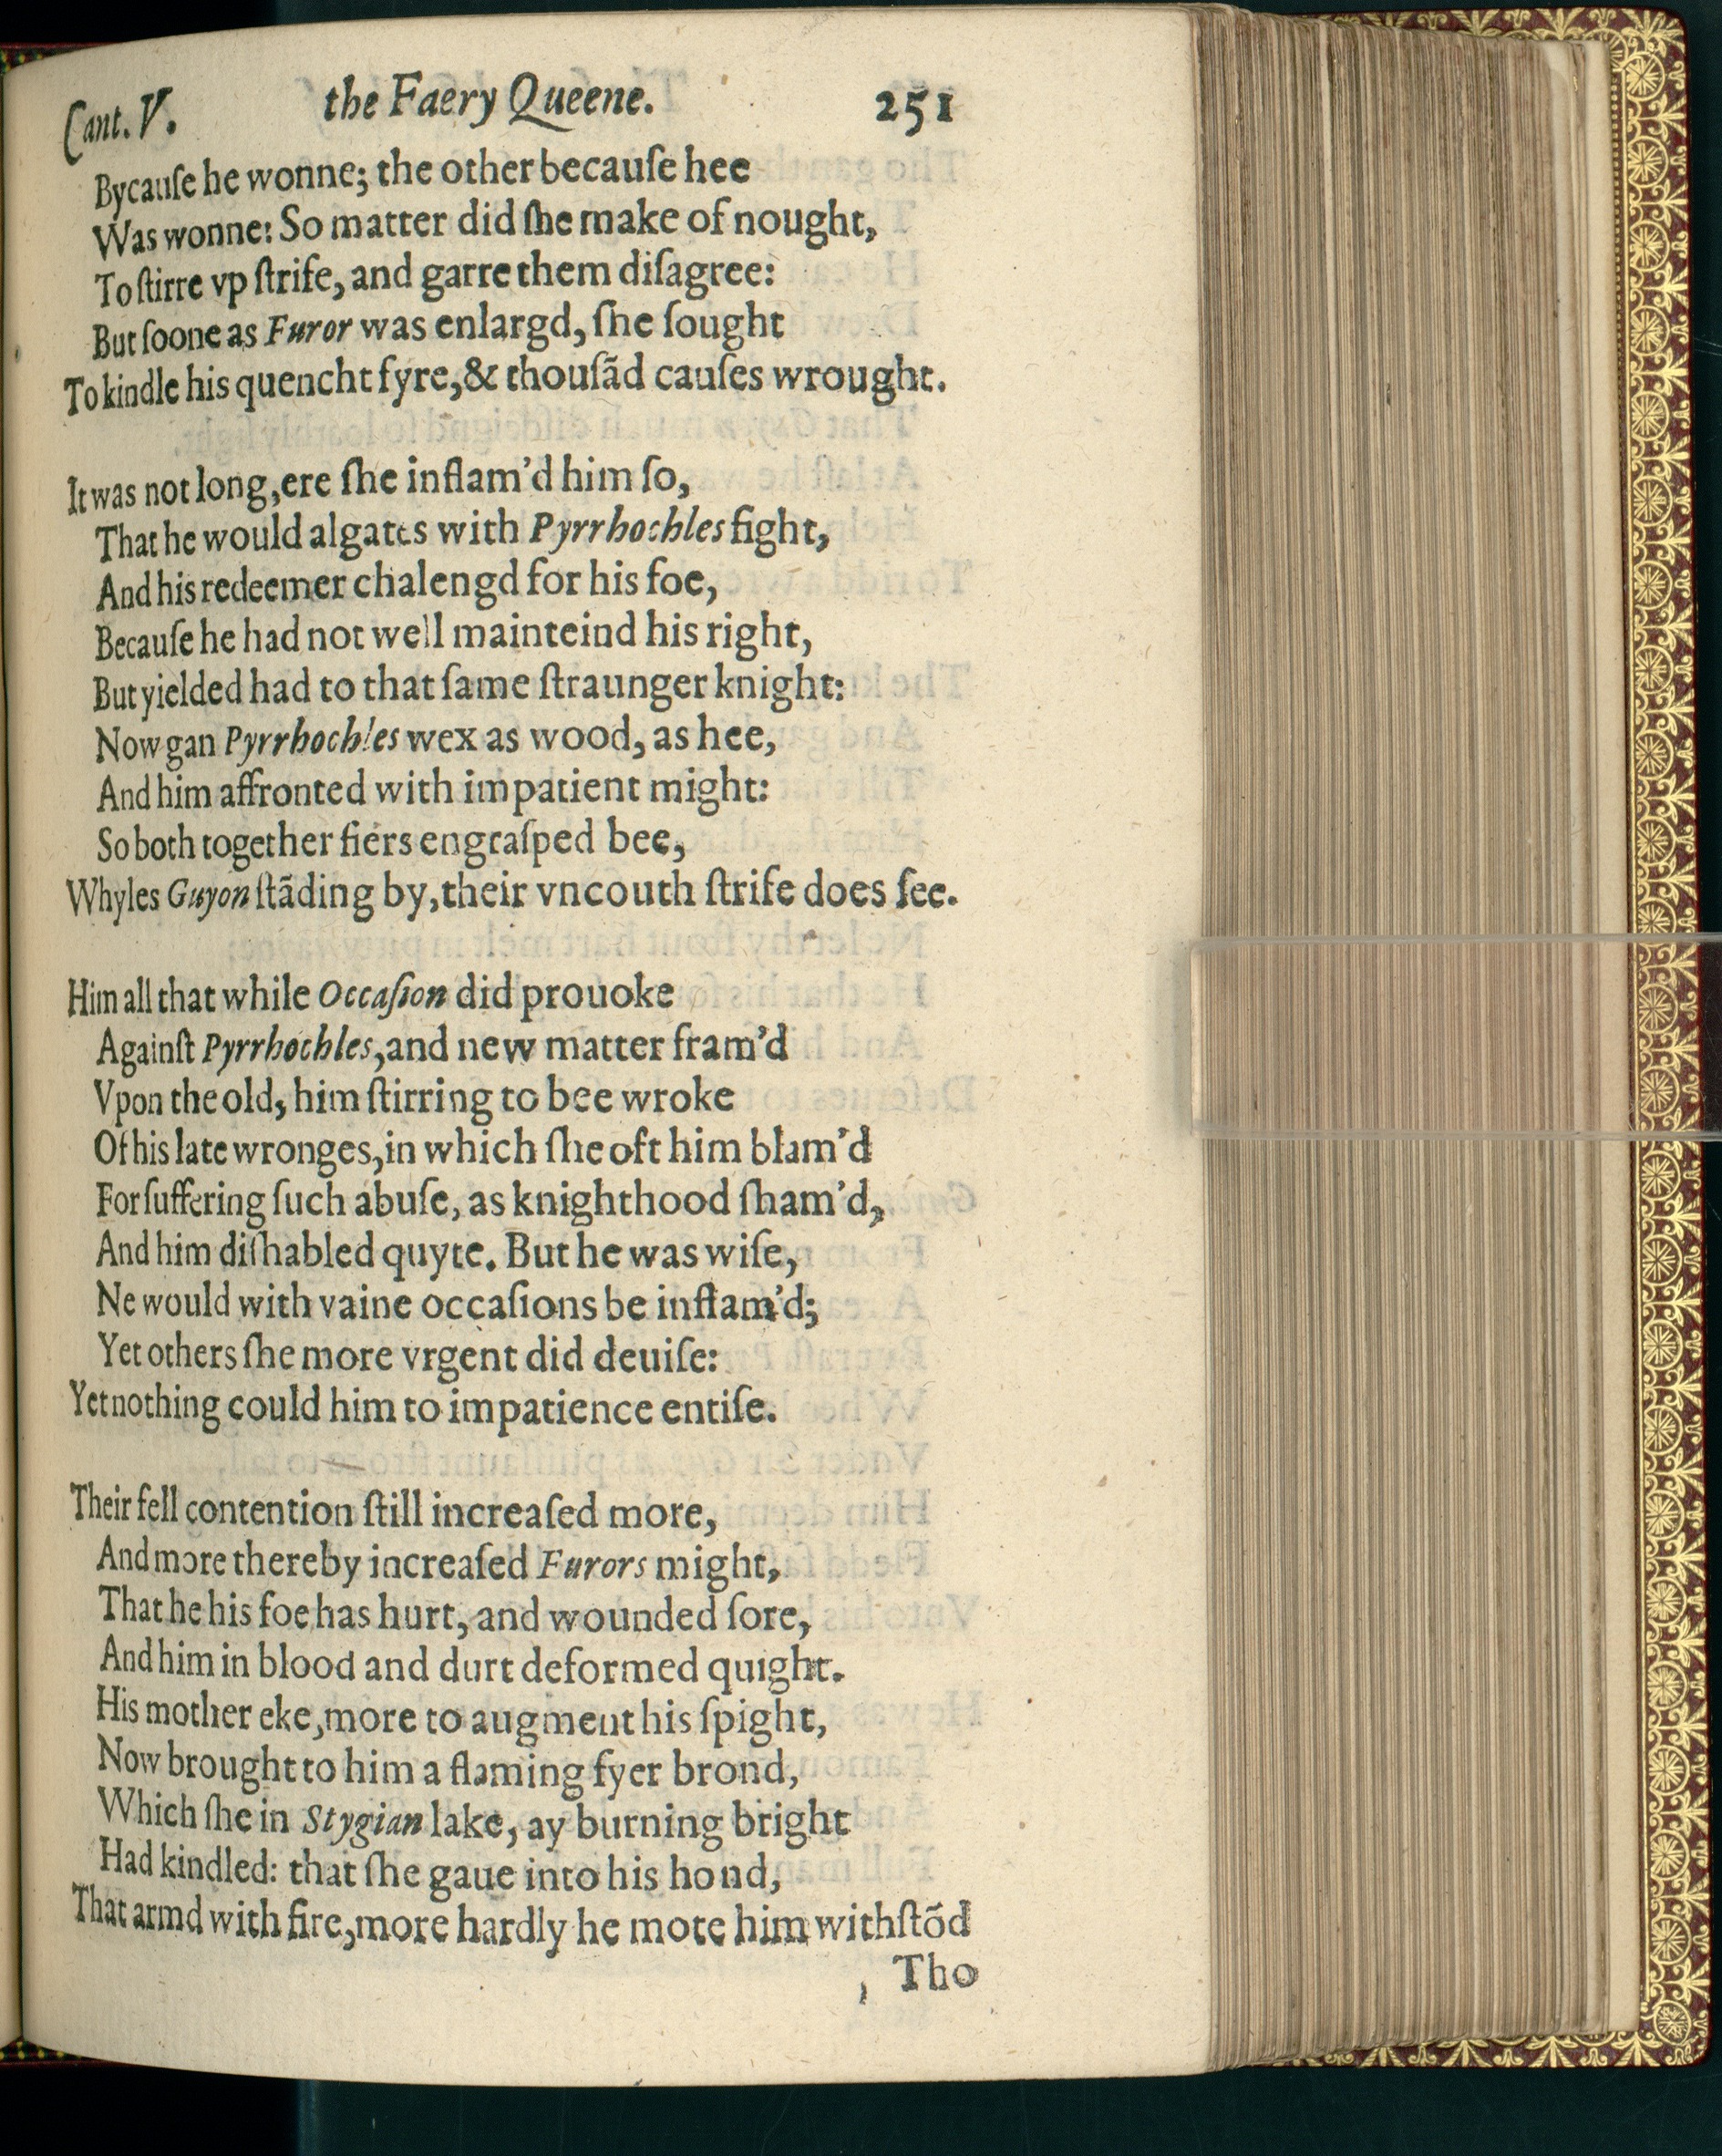 Cant. V. the Faery Queene. 251
Bycauſe he wonne; the other becauſe hee
Was wonne: So matter did ſhe make of nought,
To ſtirre vp ſtrife, and garre them diſagree:
But ſoone as Furor was enlargd, ſhe ſought
To kindle his quencht fyre, & thouſãd cauſes wrought.
It was not long, ere ſhe inflam'd him ſo,
That he would algates with Pyrrhochles fight,
And his redeemer chalengd for his foe,
Becauſe he had not well mainteind his right,
But yielded had to that ſame ſtraunger knight:
Now gan Pyrrhochles wex as wood, as hee,
And him affronted with impatient might:
So both together fiers engraſped bee,
Whyles Guyon ſtãding by, their vncouth ſtrife does ſee.
Him all that while Occaſion did prouoke
Againſt Pyrrhochles, and new matter fram'd
Vpon the old, him ſtirring to bee wroke
Of his late wronges, in which ſhe oft him blam'd
For ſuffering ſuch abuſe, as knighthood ſham'd,
And him diſhabled quyte. But he was wiſe,
Ne would with vaine occaſions be inflam'd;
Yet others ſhe more vrgent did deuiſe:
Yet nothing could him to impatience entiſe.
Their fell contention ſtill increaſed more,
And more thereby increaſed Furors might,
That he his foe has hurt, and wounded ſore,
And him in blood and durt deformed quight.
His mother eke, more to augment his ſpight,
Now brought to him a flaming fyer brond,
Which ſhe in Stygian lake, ay burning bright
Had kindled: that ſhe gaue into his hond,
That armd with fire, more hardly he mote him withſtõd
Tho